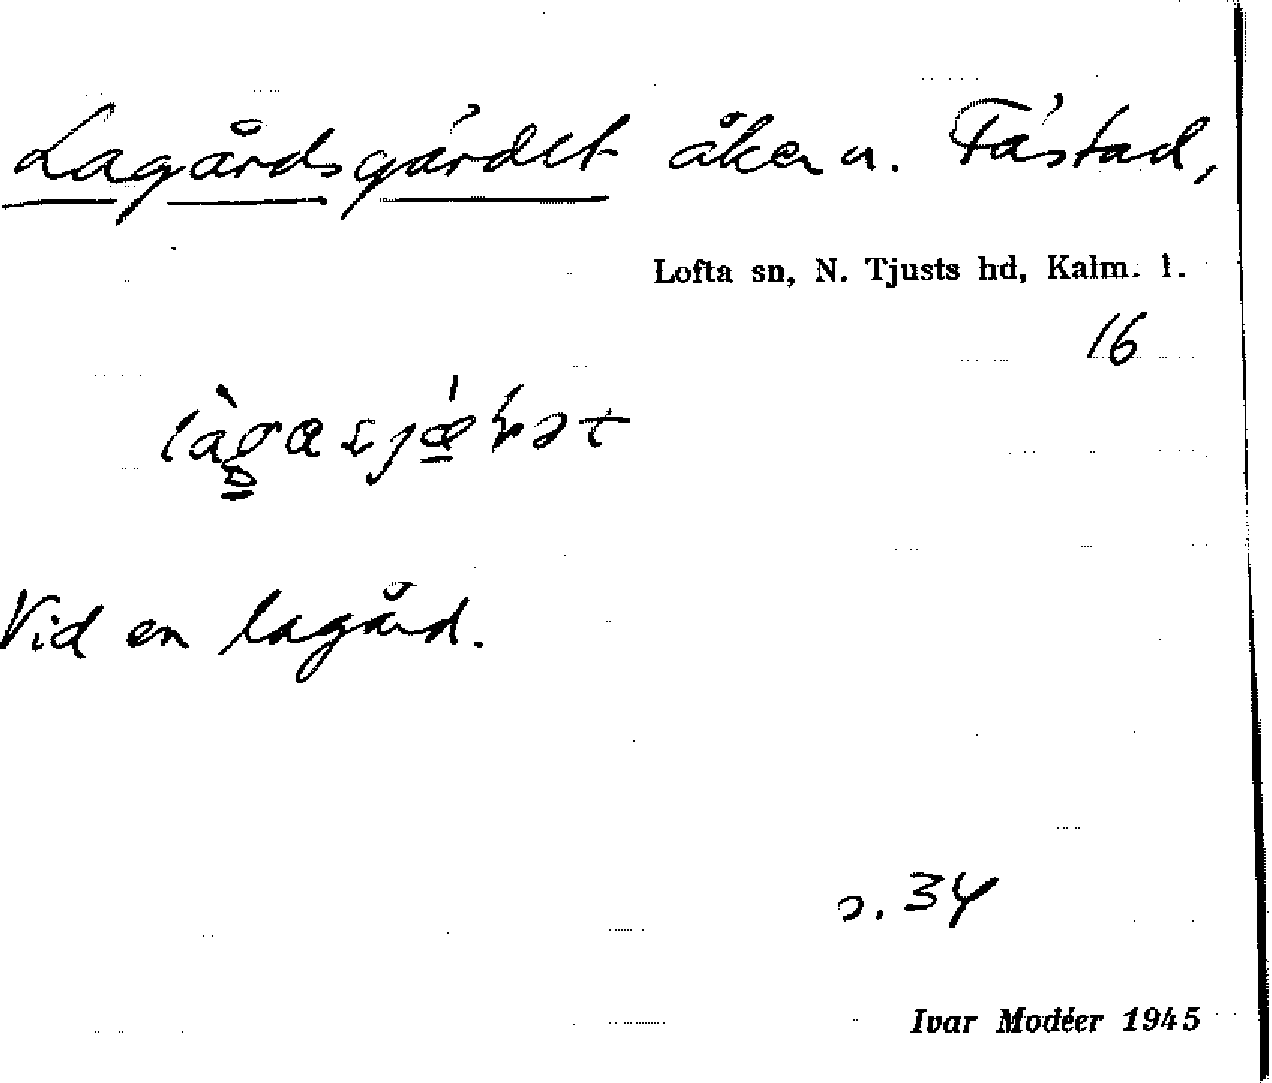 Lagårdsgärdet åker n. Tåstad,
Lofta sn, N. Tjusts hd, Kalm. l.
16
Vid en lagård.
s. 34
Ivar Modéer 1945